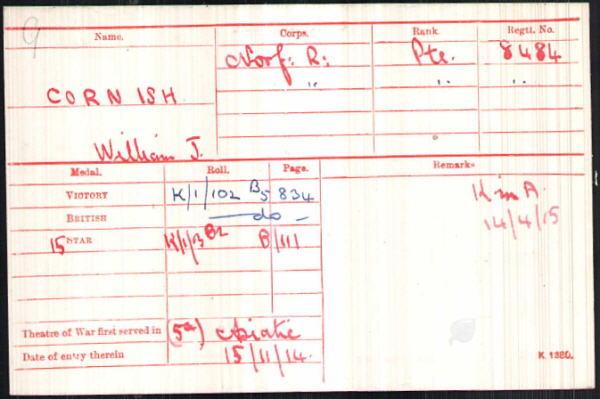 9
Name. Corps. Rank. Regtl. No.
Norf: R: Pte. 8484
CORNISH " " "
William J.
Medal. Roll. Page. Remarks
VICTORY K/1/102 B5 834 K in A.
BRITISH — do — 14/4/15
15 STAR K/1/3 B2 B/111
Theatre of War first served in (5a) Asiatic
Date of entry therein 15/11/14.
K 1380.